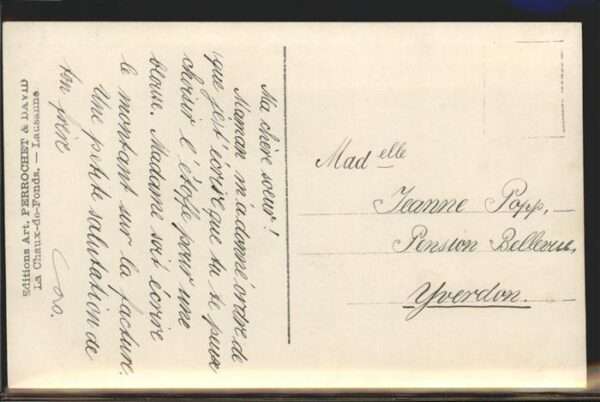 Ma chère soeur!
Maman m'a donné ordre de
que je t'écrire que tu te peux
choisir l'étoffe pour une
blouse. Madame soit écrire
le montant sur la facture.
Une petite salutation de
ton frère
Editions Art. PERROCHET & DAVID
La Chaux-de-Fonds. — Lausanne
Madelle
Jeanne Popp,
Pension Bellevue,
Yverdon.